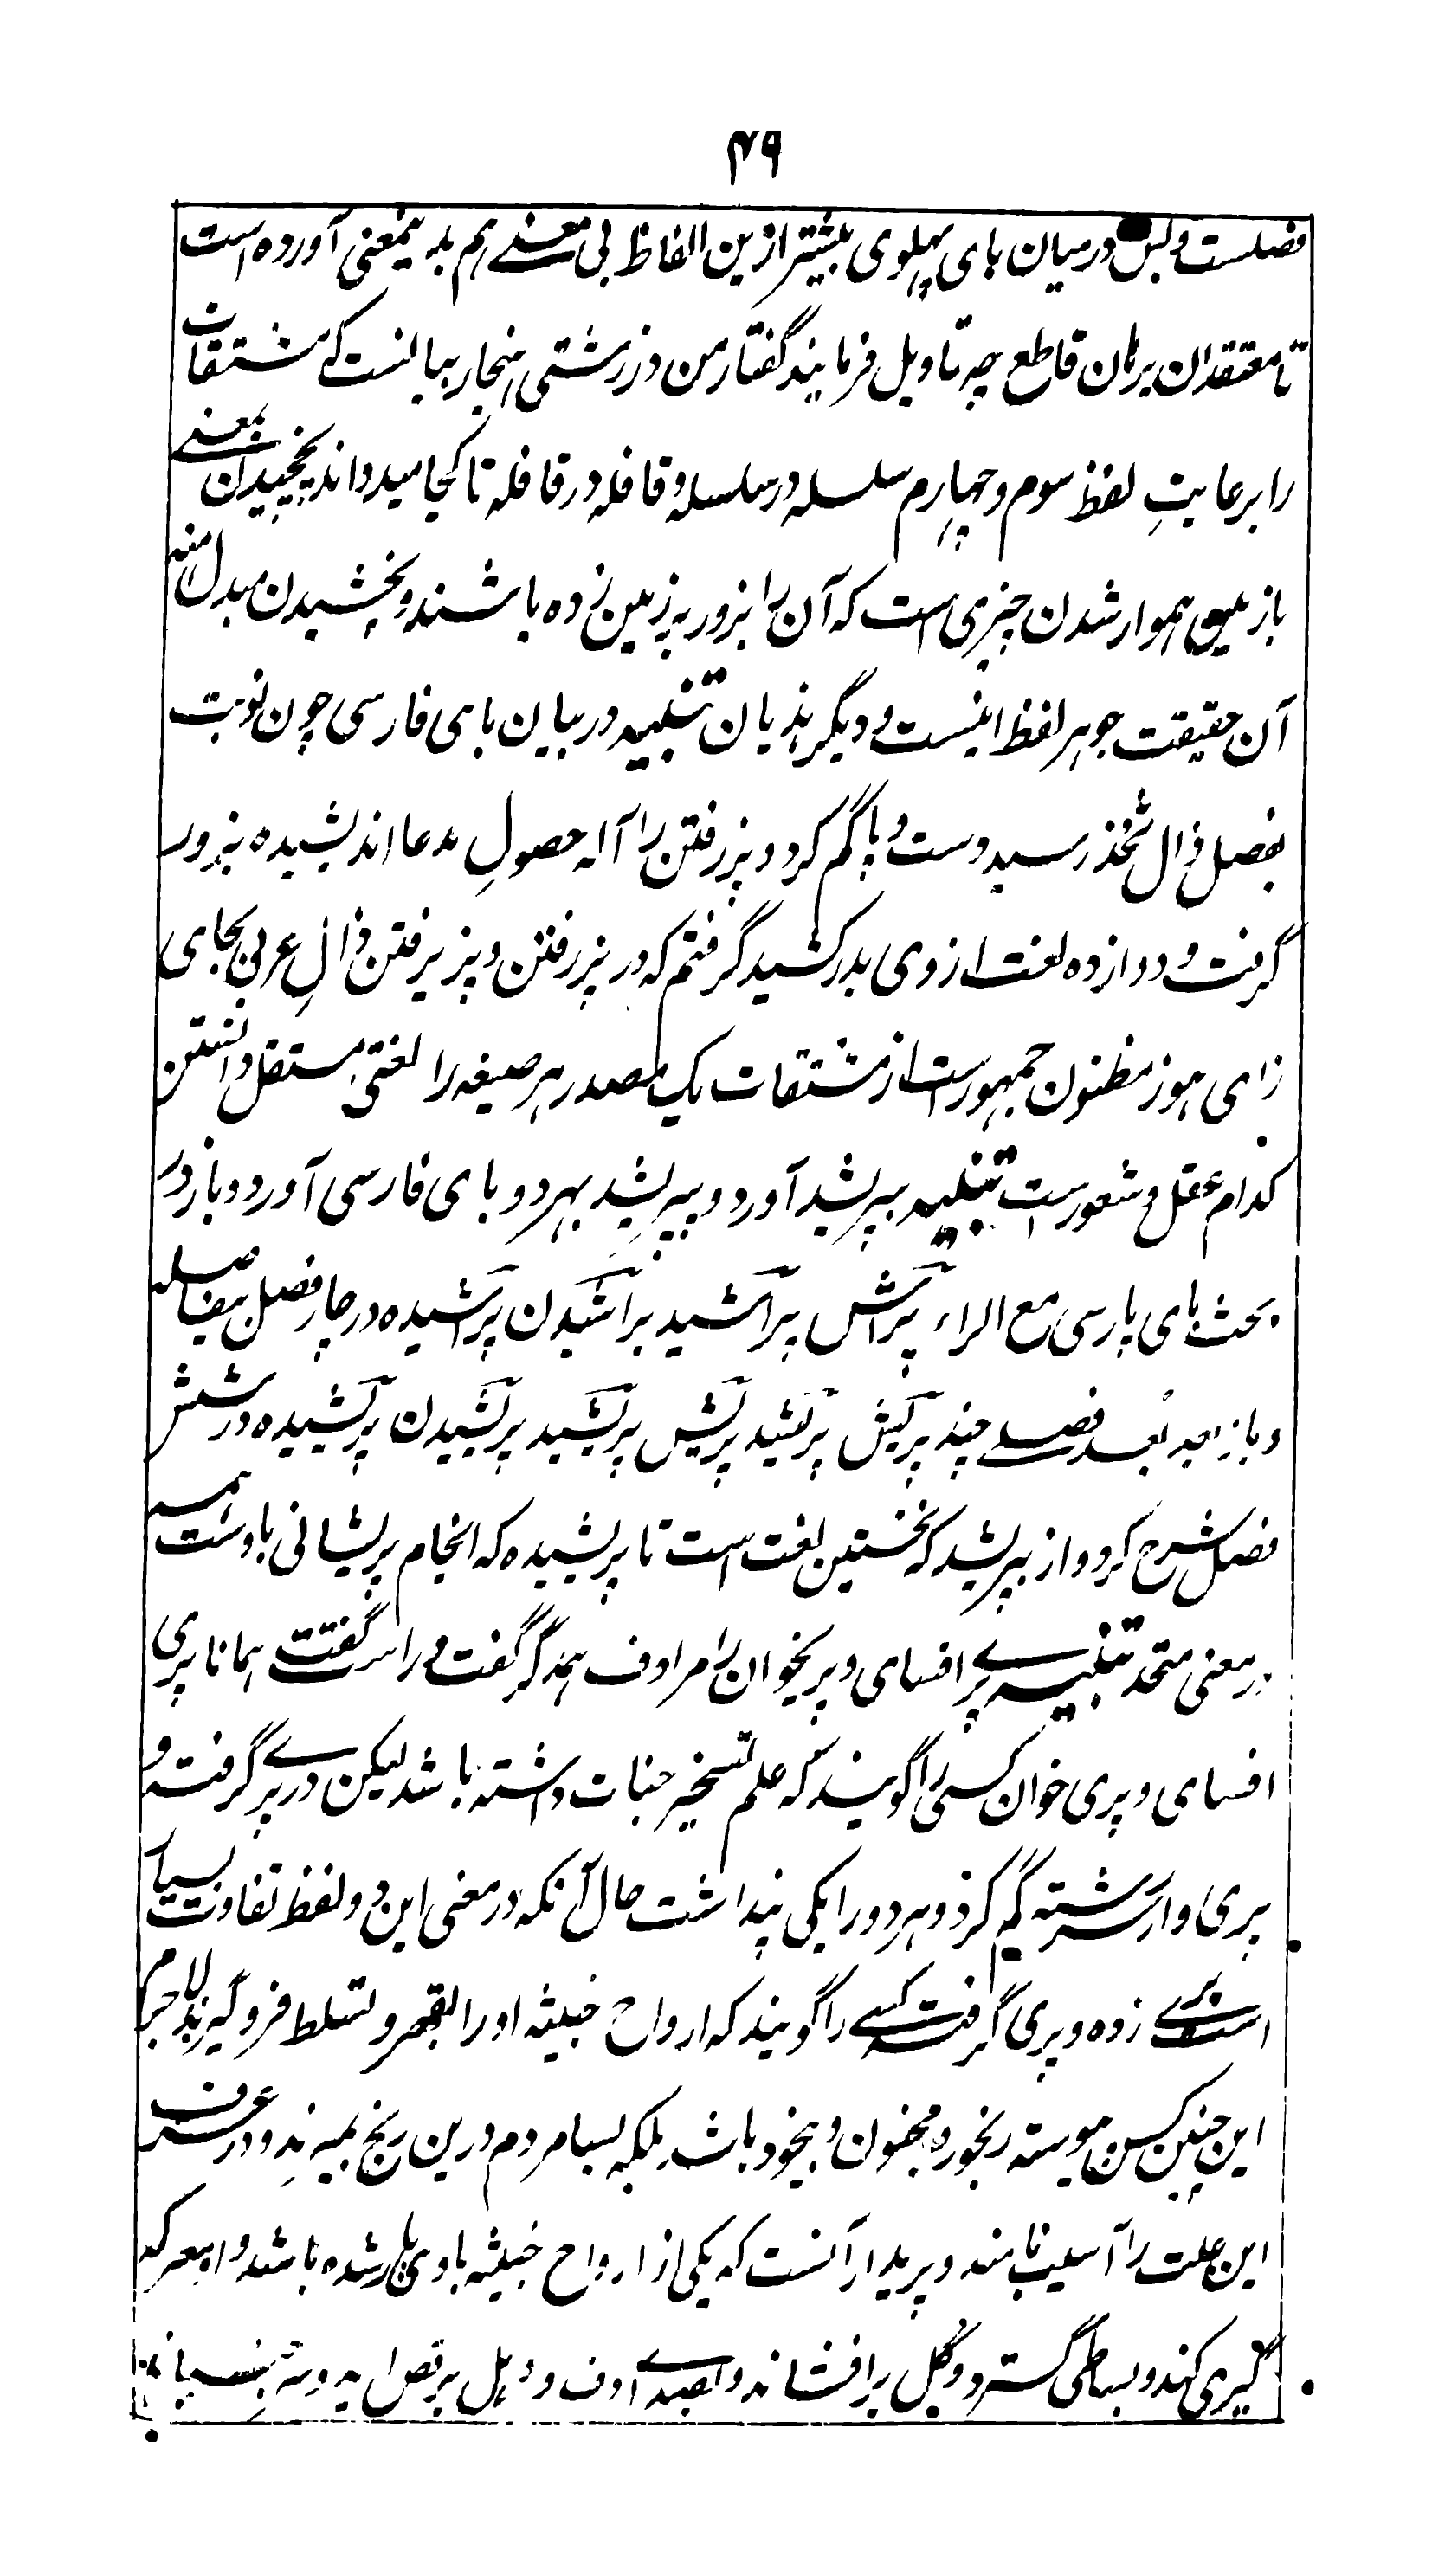 ۴۹
فصلست و بس در میان بای پهلوی بیشتر ازین الفاظ بی معنی هم بدینمعنی آورده است
تا معتقدان برهان قاطع چه تاویل فرمایند گفتار من در زشتی هنجار بیانست که مشتقات
را برعایتِ لفظ سوم و چهارم سلسله در سلسله و قافله در قافله تا کجا میدواند پخچیدن بمعنی
با زمین هموار شدن چیزی است که آن را بزور بر زمین زده باشند و پخشیدن مبدل منه
آن حقیقت جوهر لفظ اینست و دیگر هذیان تنبیه در بیان بای فارسی چون نوبت
بفصل ذال ثخذ رسید دست و پا گم کرد و پذرفتن را آلهٔ حصولِ مدعا اندیشیده بزور
گرفت و دوازده لغت از وی بدر کشید گرفتم که در پذرفتن و پذیرفتن ذالِ عربی بجای
زای هوز مظنون جمهورست از مشتقات یک مصدر هر صیغه را لغتی مستقل دانستن
کدام عقل و شعورست تنبیه بپریشید آورد و بپریشید بهر دو بای فارسی آورد و باز در
بحث بای پارسی مع الراء پراش پراشید پراشیدن پراشیده در چار فصل بیفاصله
و باز بعد فصلی چند پریش پریشید پریشیدن پریشیده در شش
فصل شرح کرد و از بپریشید که نخستین لغت است تا پریشیده که انجام پریشانی باوست همه
در معنی متحد تنبیه پری افسای و پریخوان را مرادف همدگر گفت و راست گفت همانا پری
افسای و پری خوان کسی را گویند که علم تسخیر جنات داشته باشد لیکن در پری گرفته و
پری دار سر رشته گم کرد و هر دو را یکی پنداشت حال آنکه در معنی این دو لفظ تفاوت بسیار
است پری زده و پری گرفته کسی را گویند که ارواح خبیثه او را بقهر و تسلط فرو گیرند لاجرم
این چنین کس پیوسته رنجور و مجنون و بیخود باشد بلکه بسا مردم درین رنج بمیرند و در عرف
این علت را آسیب نامند و پریدار آنست که یکی از ارواح خبیثه با وی یار شده باشد و او معرکه
گیری کند و بساطی گسترد و گل بر افشاند و بصدای دف و دهل برقص آید و